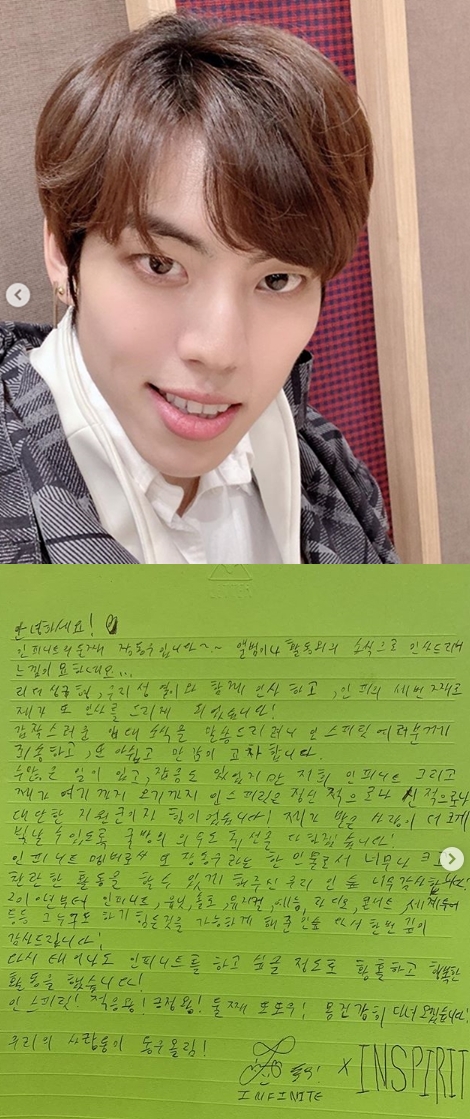 안녕하세요!
인피니트의 둘째 장동우입니다~~ 앨범이나 활동외의 소식으로 인사드리려
느낌이 묘하네요...
리더성규형, 우리 성열이와 함께 인사하고, 인피의 세번째로
제가 또 인사를 드리게 되었습니다!
갑작스러운 입대 소식을 말씀드리려니 인스피릿 여러분께
죄송하고, 또 아쉽고 만감이 교차합니다.
수많은 일이 있고, 잡음도 있었지만 저희 인피니트 그리고
제가 여기까지 오기까지 인스피릿은 정신적으로나 심적으로나
대단한 지원군이자 힘이었습니다! 제가 받은 사랑이 더 크게
빛날 수 있도록 국방의 의무도 최선을 다하겠습니다!
인피니트 멤버로써 또 장동우라는 한 인물로서 너무나
찬란한 활동을 할 수 있게 해주신 우리 인숲 너무 감사합니다!
2010년부터 인피니트, 유닛, 솔로, 뮤지컬, 예능, 라디오, 콘서트,
등등 그 누구도 하기 힘든것을 가능하게 해준 인숲 다시 한번 깊이
감사드립니다!
다시 태어나도 인피니트를 하고 싶을 정도로 황홀하고 행복한
활동을 했습니다!
인스피릿! 적응왕! 긍정왕! 둘째 또또우! 몸건강히 다녀오겠습니다!
우리의 사랑둥이 동우올림!
INFINITE
X INSPIRIT